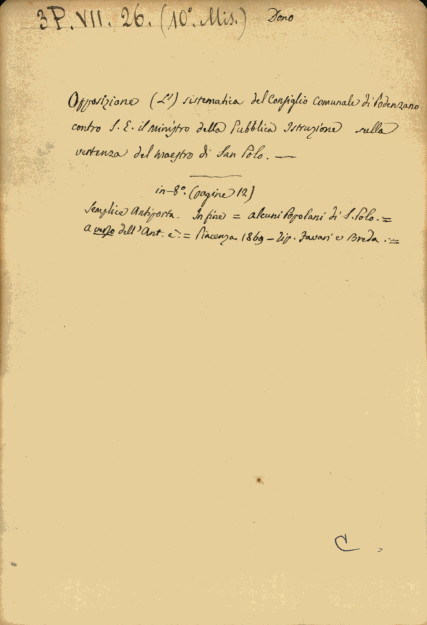 3 P. VII. 26. (10º. Mis.) Dono
Opposizione (L') sistematica del Consiglio Comunale di Podenzano
contro S. E. il Ministro della Pubblica Istruzione sulla
vertenza del maestro di San Polo. —
in-8º. (pagine 12)
Semplice Antiporta. In fine = alcuni Popolani di S. Polo. =
A verso dell'Ant. è: = Piacenza 1869 - Tip. Favari e Breda. =
C